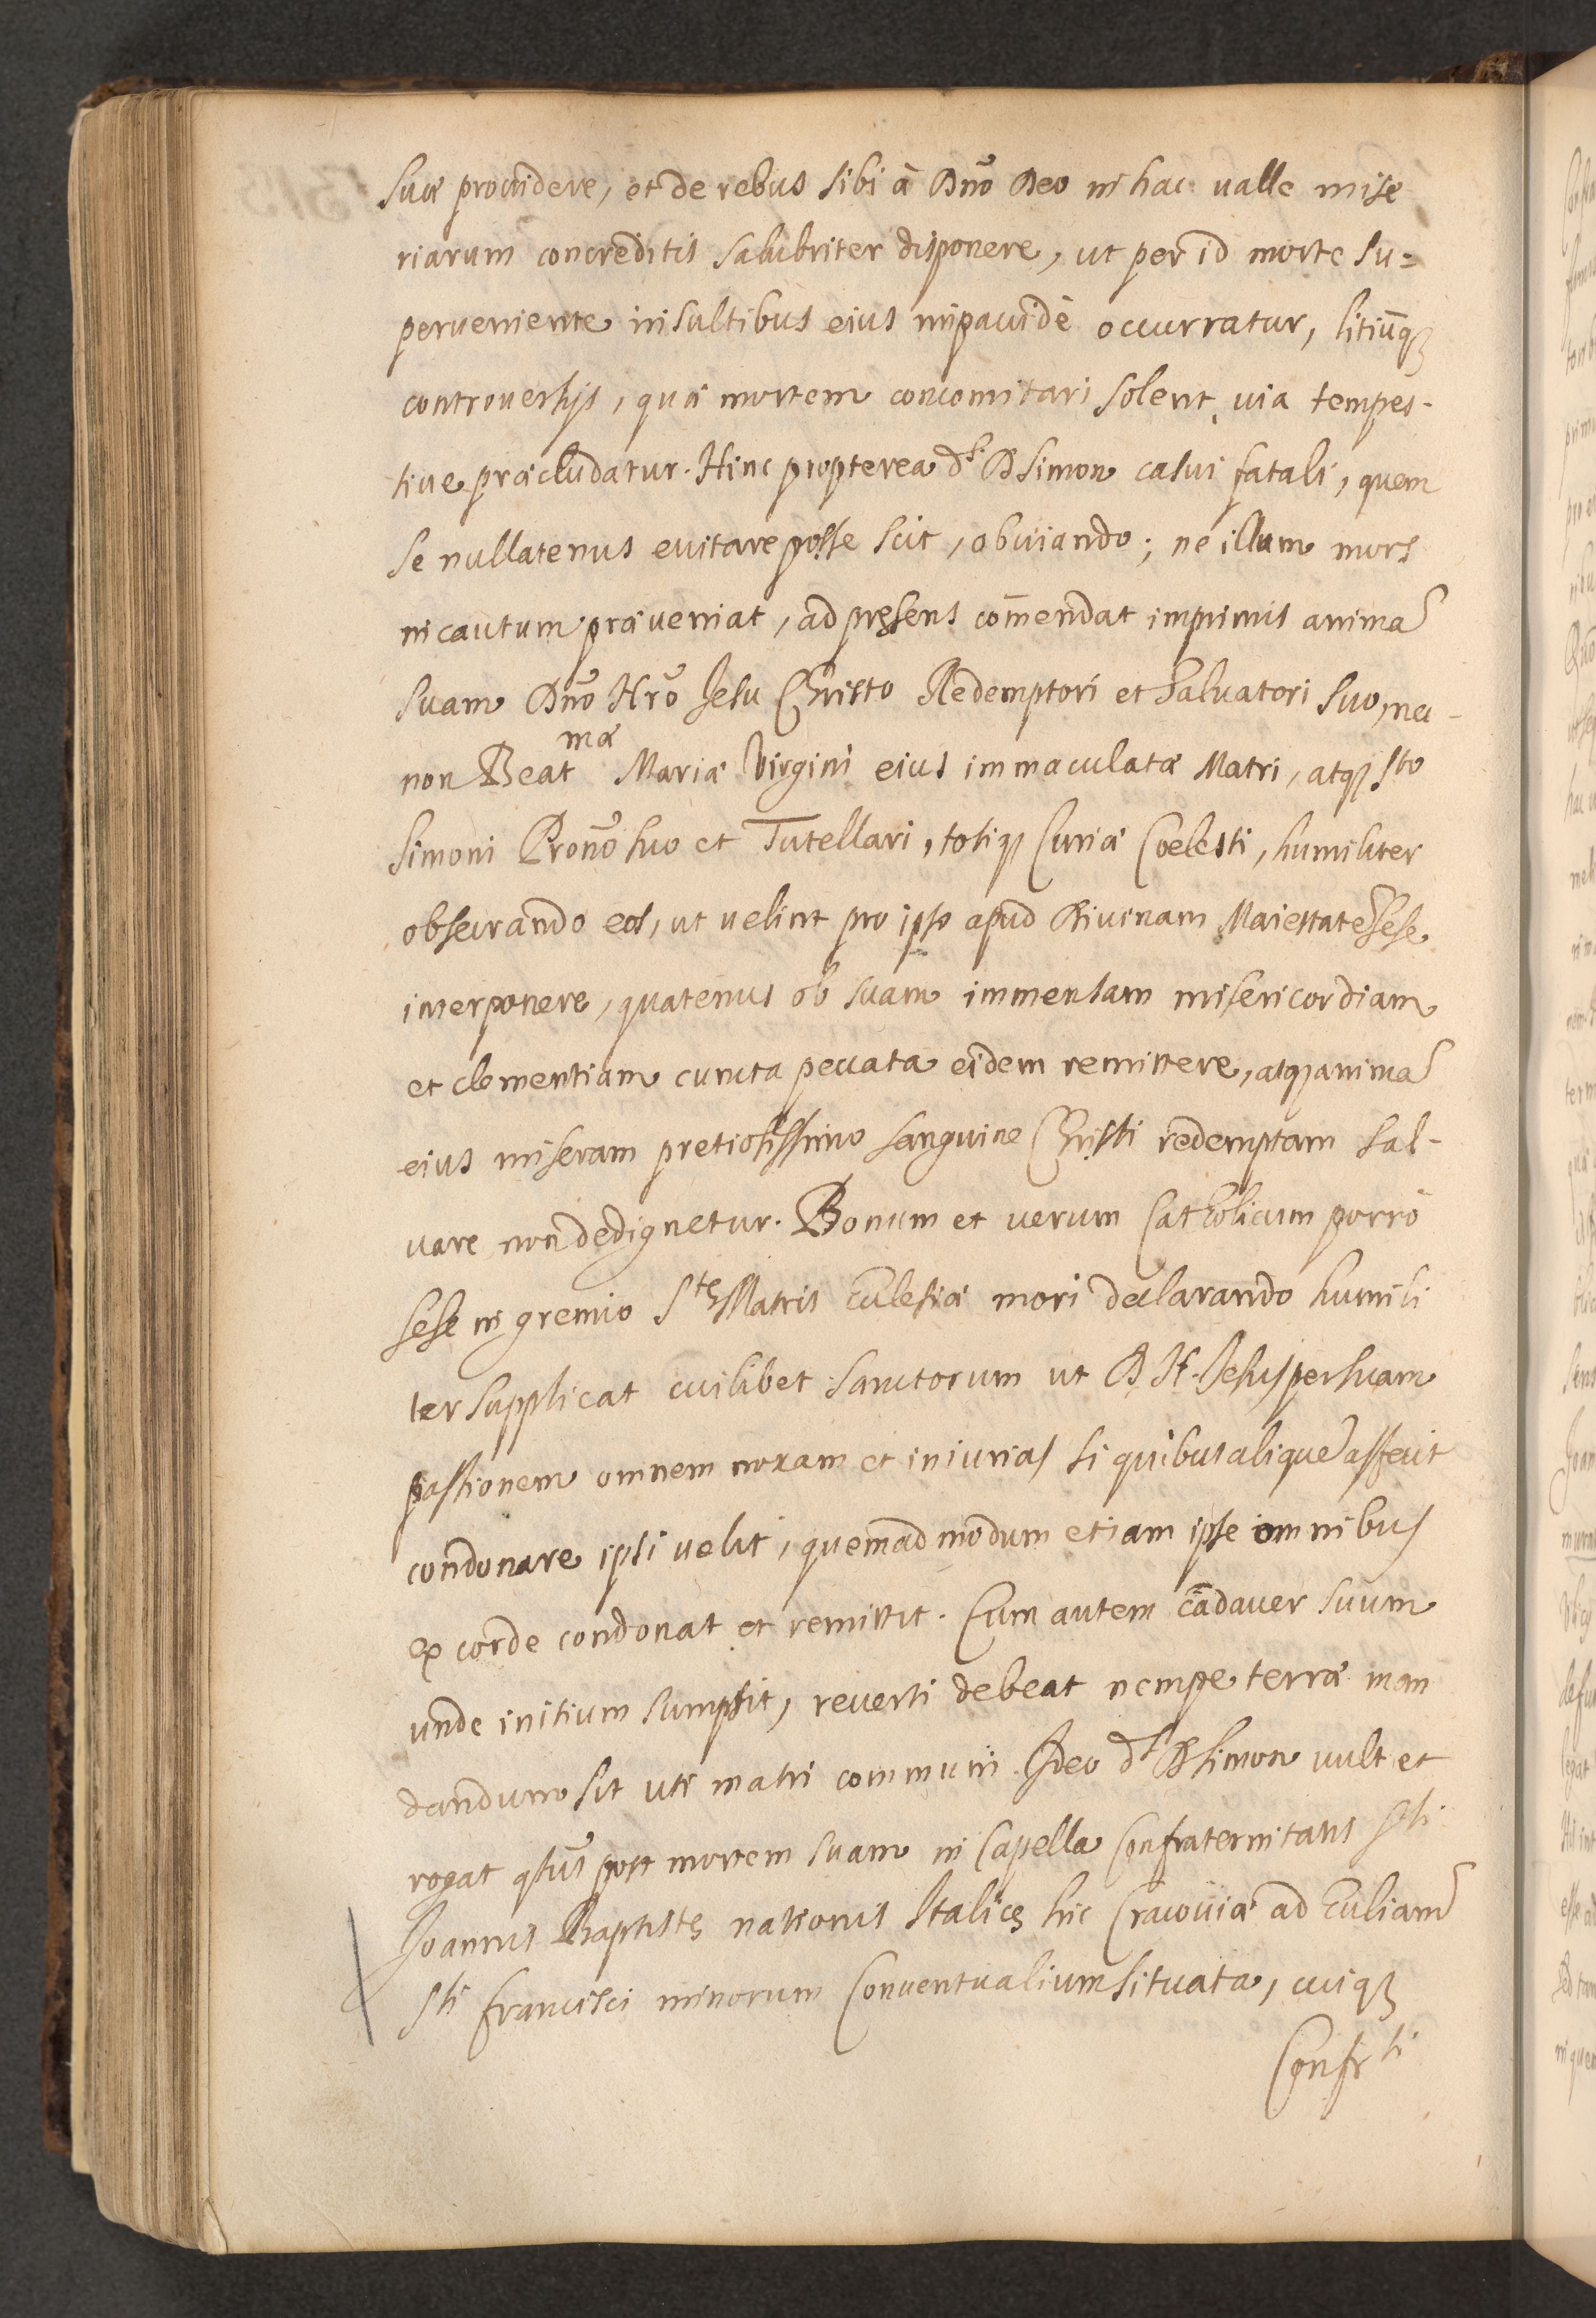 suæ prouidere, et de rebus sibi à Dn̄o Deo in hac ualle mise
riarum concreditis salubriter disponere, ut per id morte su=
perueniente insultibus eius inpauidè occurratur, litiūq₃
controuersijs, quæ mortem concomitari solent, uia tempes-
tiue præcludatur. Hinc propterea ds. D Simon casui fatali, quem
se nullatenus euitare posse scit, obuiando; ne illum mors
incautum præueniat, ad pręsens com̄endat inprimis animā
suam Dn̄o Nr̄o Jesu Christo Redemptori et Saluatori suo, nec-
non Beatmæ Mariæ Virgini eius immaculatæ Matri, atq₃ Sto
Simoni Pron̄o suo et Tutellari, totiq₃ Curiæ Coelesti, humiliter
obsecrando eos, ut uelint pro ipso apud Diuinam Maiestatē sese
interponere, quatenus ob suam immensam misericordiam
et clementiam cuncta peccata eidem remittere, atq₃ animā
eius miseram pretiosissimo sanguine Christi redemptam sal-
uare non dedignetur. Bonum et uerum Catholicum porrò
sese in gremio Stę Matris Ecclesiæ mori declarando humili
ter supplicat cuilibet Sanctorum ut D. N. Jesus per suam
passionem omnem noxam et iniurias si quibus aliquē affecit
condonare ipsi uelit, quemadmodum etiam ipse omnibus
ex corde condonat et remittit. Cum autem cadauer suum
unde initium sumpsit, reuerti debeat nempe terræ man
dandum sit uti matri communi. Ideo ds D Simon uult et
rogat qtūs post mortem suam in Capella Confraternitatis Sti
Joannis Baptistę nationis Italicę hic Cracouiæ ad Ecclīam
Sti Francisci minorum Conuentualium situata, cuiq₃
Confrti